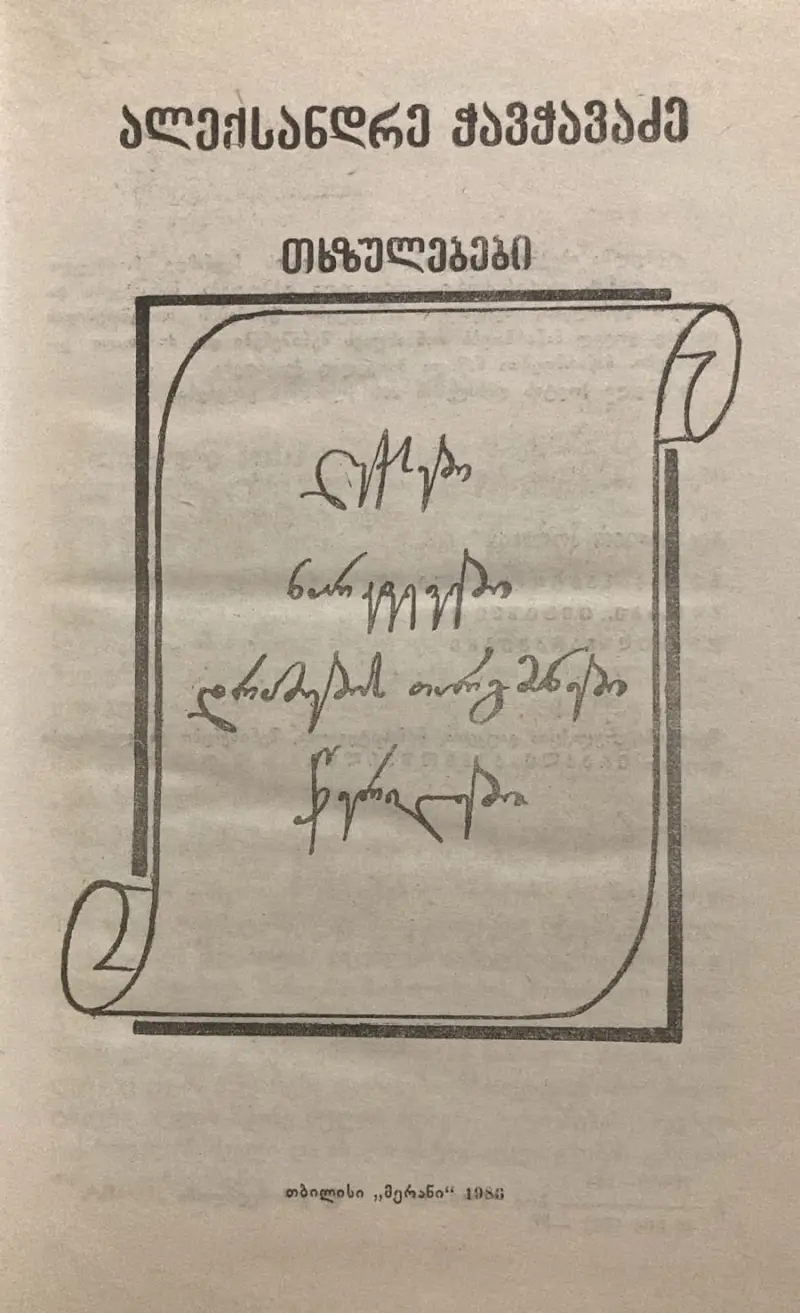 ალექსანდრე ჭავჭავაძე
თხზულებები
ლექსები
ნარკვევები
დრამების თარგმანები
წერილები
თბილისი „მერანი“ 1986